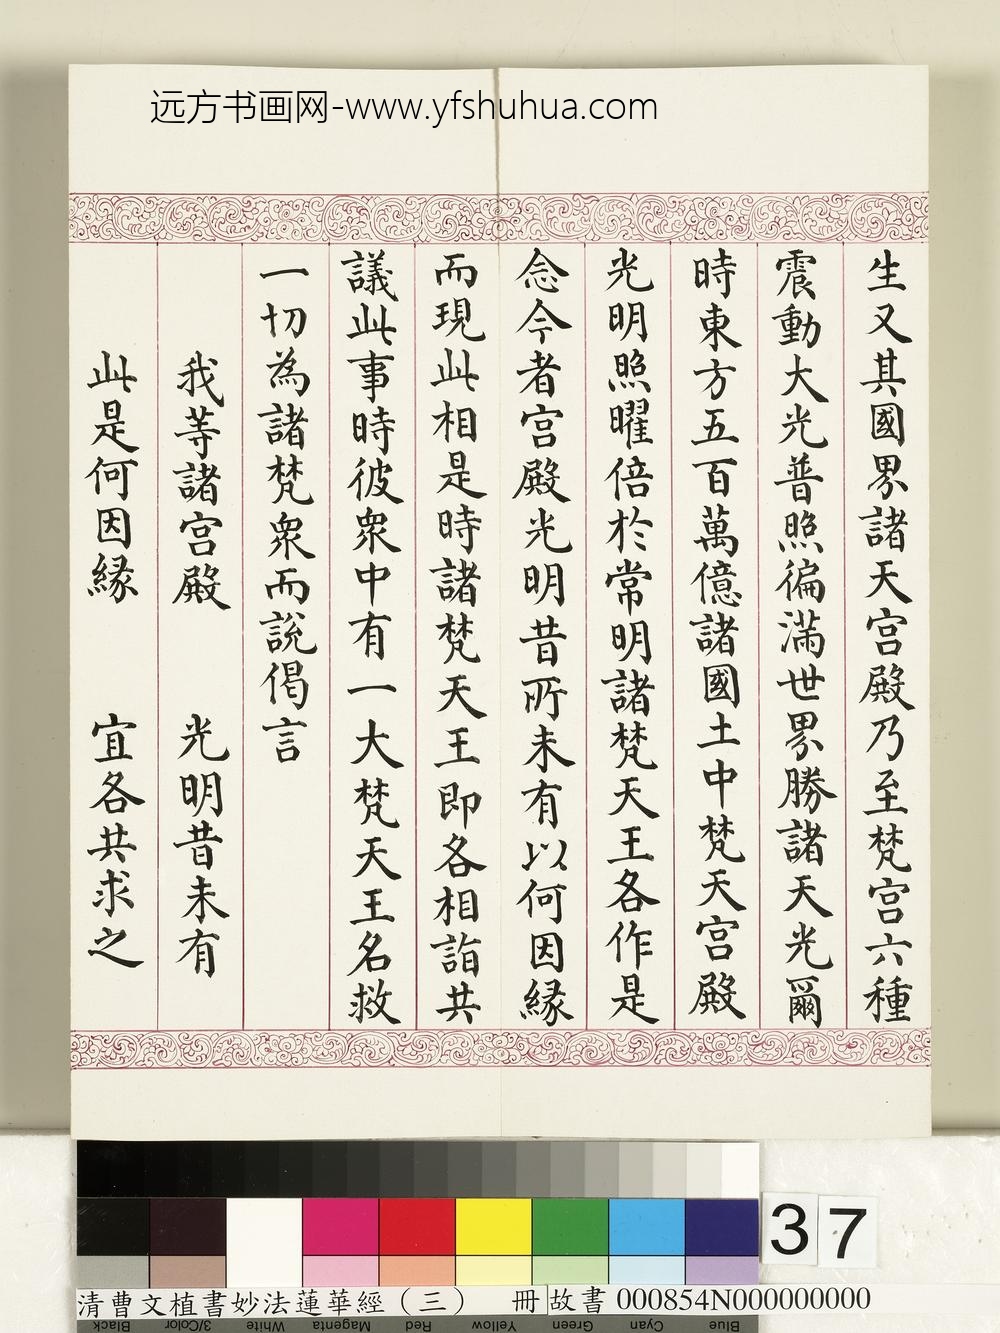 远方书画网-www.yfshuhua.com
生又其國界諸天宮殿乃至梵宮六種
震動大光普照徧滿世界勝諸天光爾
時東方五百萬億諸國土中梵天宮殿
光明照曜倍於常明諸梵天王各作是
念今者宮殿光明昔所未有以何因緣
而現此相是時諸梵天王即各相詣共
議此事時彼衆中有一大梵天王名救
一切為諸梵衆而說偈言
我等諸宮殿 光明昔未有
此是何因緣 宜各共求之
37
清曹文植書妙法蓮華經（三） 冊 故書 000854N000000000
Black 3/Color White Magenta Red Yellow Green Cyan Blue